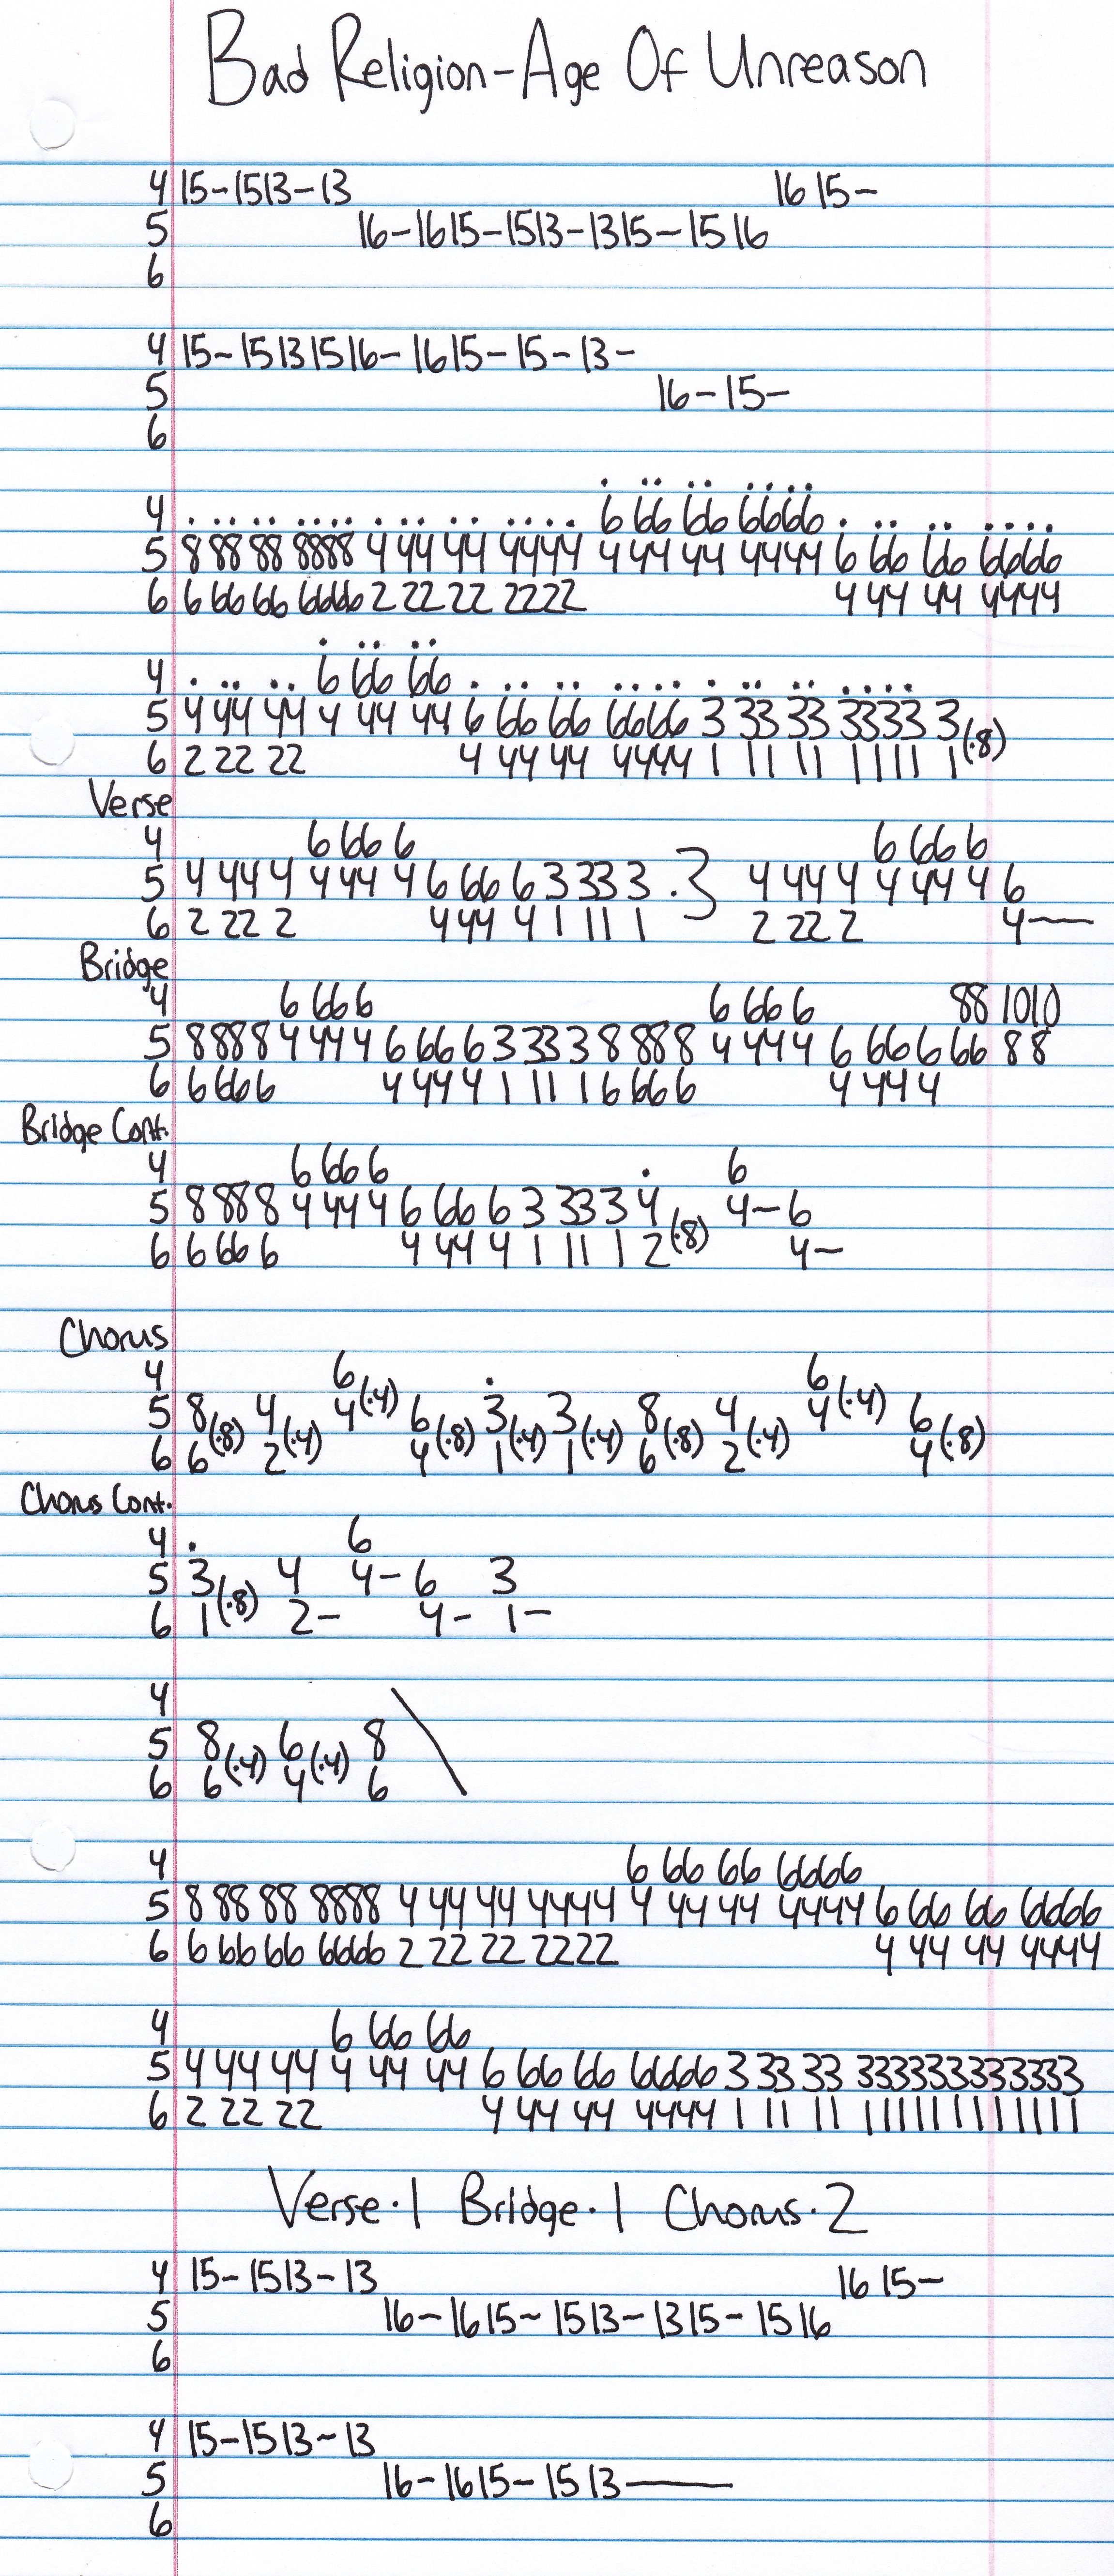 Bad Religion-Age Of Unreason
4 15-1513-13 16 15-
5 16-1615-1513-1315-1516
6
4 15-15131516-1615-15-13-
5 16-15-
6
4 . .. .. .... . .. .. .... 6 66 66 6666 . .. .. ....
5 8 88 88 8888 4 44 44 4444 4 44 44 4444 6 66 66 6666
6 6 66 66 6666 2 22 22 2222 4 44 44 4444
4 . .. .. 6 66 66 . .. .. .... . .. .. ....
5 4 44 44 4 44 44 6 66 66 6666 3 33 33 3333 3
6 2 22 22 4 44 44 4444 1 11 11 1111 1 (·8)
Verse
4 6 66 6 6 66 6
5 4 44 4 4 44 4 6 66 6 3 33 3 ·3 4 44 4 4 44 4 6
6 2 22 2 4 44 4 1 11 1 2 22 2 4—
Bridge
4 6 66 6 6 66 6 88 1010
5 8 88 8 4 44 4 6 66 6 3 33 3 8 88 8 4 44 4 6 66 6 66 88
6 6 66 6 4 44 4 1 11 1 6 66 6 4 44 4
Bridge Cont.
4 6 66 6 . 6
5 8 88 8 4 44 4 6 66 6 3 33 3 4 4-6
6 6 66 6 4 44 4 1 11 1 2 (·8) 4-
Chorus
4 6 . 6
5 8 4 4 (·4) 6 3 3 8 4 4 (·4) 6
6 6 (·8) 2 (·4) 4 (·8) 1 (·4) 1 (·4) 6 (·8) 2 (·4) 4 (·8)
Chorus Cont.
4 . 6
5 3 4 4-6 3
6 1 (·8) 2- 4- 1-
4
5 8 6 8 \
6 6 (·4) 4 (·4) 6
4 6 66 66 6666
5 8 88 88 8888 4 44 44 4444 4 44 44 4444 6 66 66 6666
6 6 66 66 6666 2 22 22 2222 4 44 44 4444
4 6 66 66
5 4 44 44 4 44 44 6 66 66 6666 3 33 33 333333333333
6 2 22 22 4 44 44 4444 1 11 11 111111111111
Verse·1 Bridge·1 Chorus·2
4 15-1513-13 16 15-
5 16-1615-1513-1315-1516
6
4 15-1513-13
5 16-1615-1513—
6